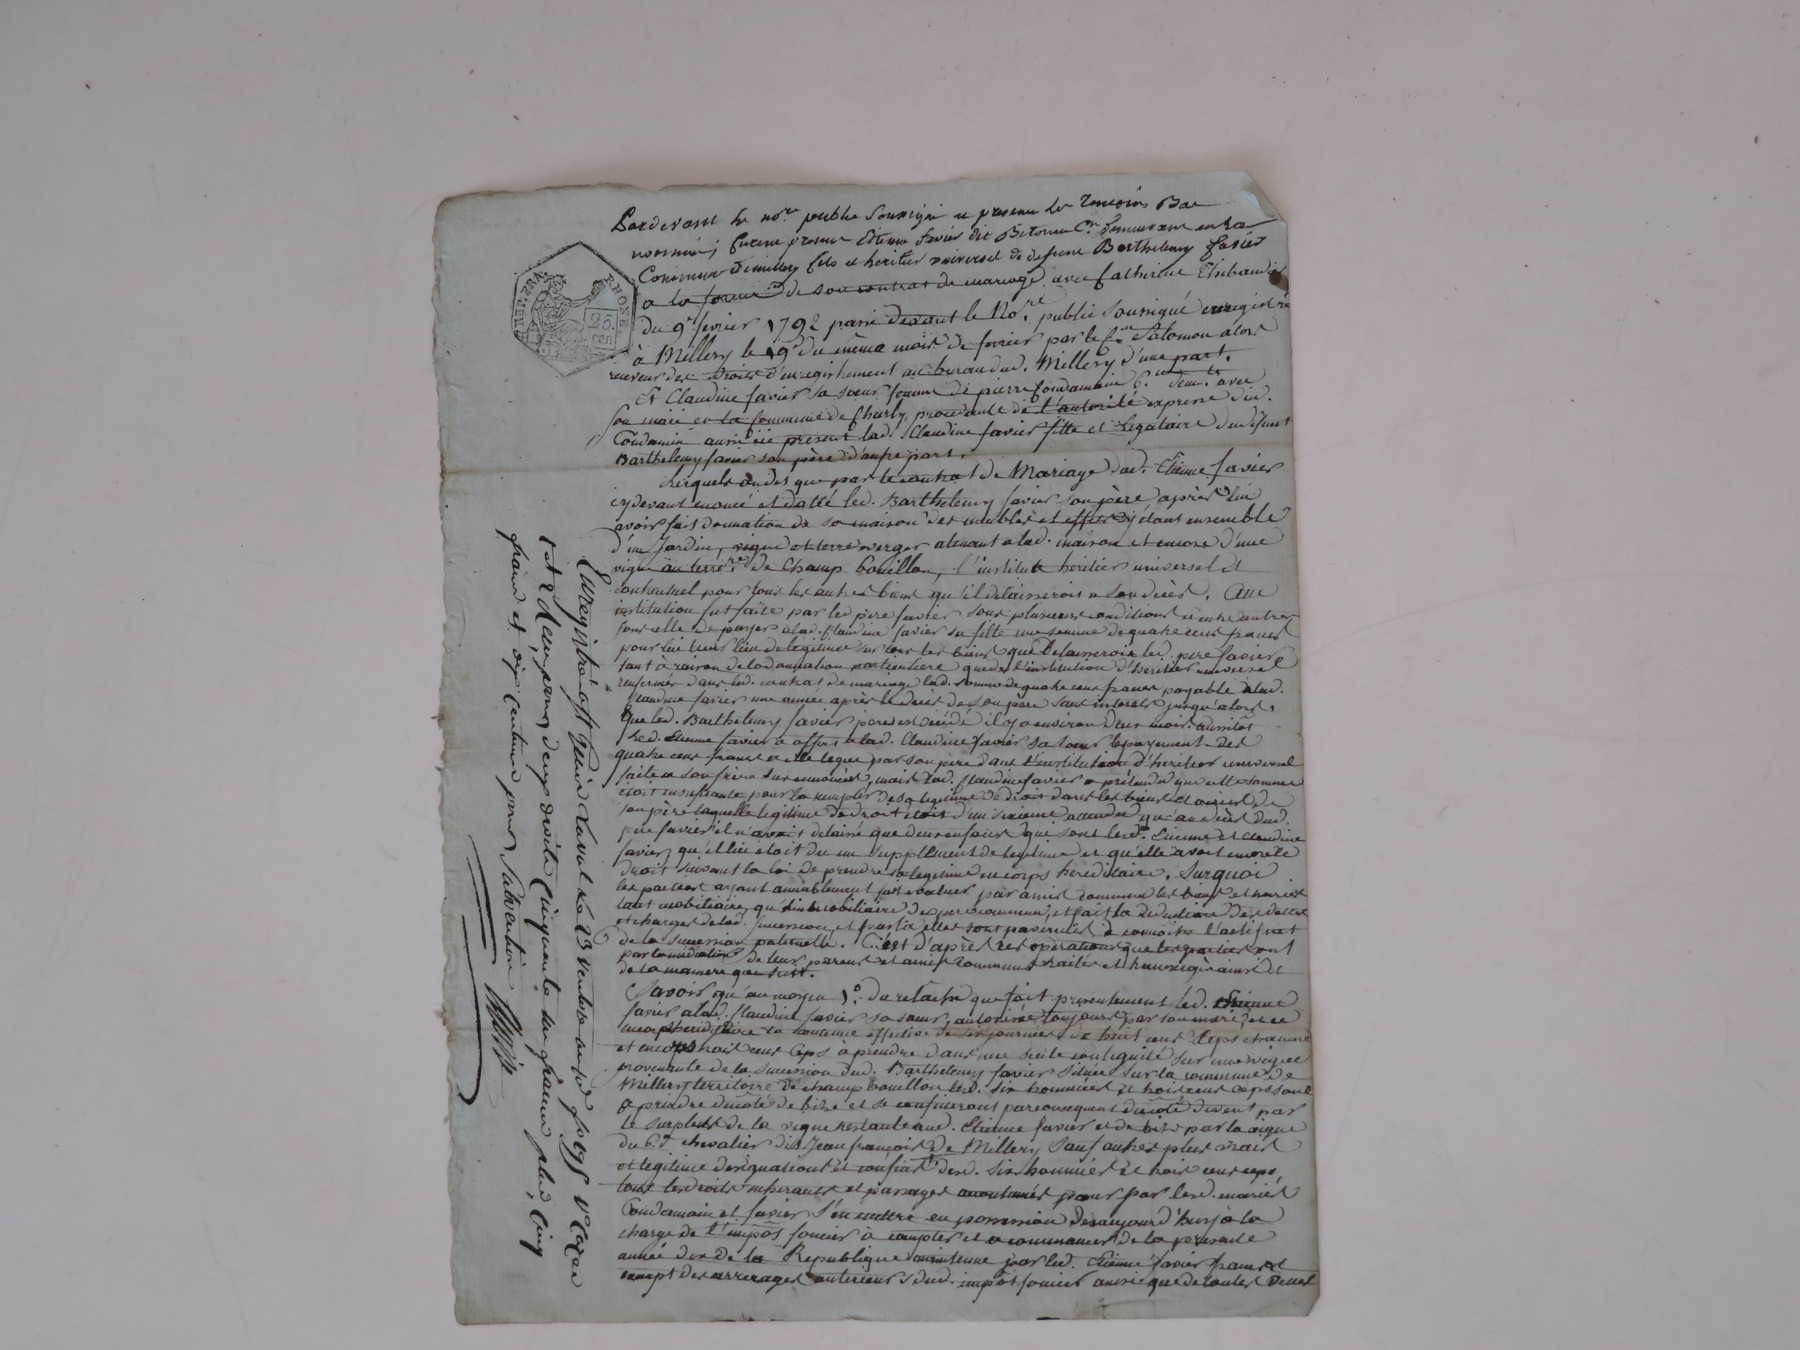 Pardevant le no.re public soussigné et présens les temoins Bas
nommés; furent presens Etienne favier dit Bitoune C.en demeurant en la
Commune de millery fils et heritier universel de defunt Barthelemy favier
a la forme de son contrat de mariage avec Catherine Thibaudier
du 9.e fevrier 1792 passé devant le No.re public soussigné enregistré
à Millery le 19 du même mois de fevrier par le C.en Salomon alors
receveur des Droits d'enregistrement au bureau dud. Millery d'une part.
Et Claudine favier sa sœur femme de pierre Condamin C.en dem.t avec
son mari en la commune de Charly, procedante de l'autorité expresse dud.
Condamin aussi ici present lad. Claudine favier fille et legataire dud. défunt
Barthelemy favier son père d'autre part.
Lesquels ont dit que par le contrat de Mariage dud. Etienne favier
cydevant enoncé et datté led. Barthelemy favier son père après lui
avoir fait donnation de sa maison des meubles et effets y étant ensemble
d'un Jardin, vigne et terre verger attenant a lad. maison et encore d'une
vigne au terr.re de Champ bouillon, l'institua heritier universel et
contractuel pour tous les autres biens qu'il delaisseroit a son décès. Que
institution fut faite par led père favier sous plusieurs conditions et entre autres
sous celle de payer a lad. Claudine favier sa fille une somme de quatre cens francs
pour lui tenir lieu de legitime sur tous les biens que delaisseroit led. pere favier
tant à raison de la donnation particuliere que de l'institution d'heritier universel
renfermée dans led. contrat de mariage lad. somme de quatre cens francs payable à lad.
Claudine favier une année après le décès de son père sans interets jusqu'alors.
Que led. Barthelemy favier pere est décédé il y a environ deux mois. aussitôt
led. Etienne favier a offert a lad. Claudine favier sa sœur le payement des
quatre cens francs a elle legué par son père dans l'institution d'heritier universel
faite a son frère sus enoncée, mais lad. Claudine favier a prétendu que cette somme
étoit insuffisante pour la remplir de sa legitime de droit dans les biens et avoirs de
son père laquelle legitime de droit étoit d'un sixieme attendu qu'au décès dud.
père favier il n'avoit delaissé que deux enfans qui sont lesd. Etienne et Claudine
favier, qu'il lui etoit du un supplement de legitime et qu'elle avoit encore le
droit suivant la loi de prendre sa legitime en corps hereditaire. Surquoi
les parties ayant amiablement fait evaluer par amis communs les biens et avoirs
tant mobiliaire qu'immobiliaire du pere commun, et fait la deduction des dettes
et charges de lad. succession, et par là elles sont parvenues à connoitre l'actif net
de la succession paternelle. C'est d'après ces operations que les parties ont
par la médiation de leurs parens et amis communs traités et transigé ainsi et
de la maniere que suit.
Savoir qu'au moyen 1.o du relache que fait presentement led. Etienne
favier a lad. Claudine favier sa sœur, autorisée toujours par son mari, et ce
en corps hereditaire la contenue effective de six hommées de huit cens Ceps chacune
et encore trois cens Ceps à prendre dans une seule contiguité sur une vigne
provenante de la succession dud. Barthelemy favier située sur la commune de
Millery territoire de champ bouillon lesd. six hommées et trois cens ceps sont
a prendre du côté de bize et se confineront par consequent du côté de vent par
le surplus de la vigne restante aud. Etienne favier et de bize par la vigne
du C.en chevalier dit Jean françois de Millery sauf autres plus vrais
et legitime designations et confins desd. six hommées et trois cens ceps,
tous les droits inherants et passages accoutumés pour par lesd. mariés
Condamin et favier s'en mettre en possession dès aujourd'huy à la
charge de l'impôt foncier à compter et a commancer de la presente
année dix de la Republique maintenue par led. Etienne favier franc et
exempt des arrerages anterieurs dud. impôt foncier ainsi que de toutes dettes
RHONE
25
cen
Enregistré à St Genis Laval le 23 ventose an dix
reçu pour deux droits Cinquante six francs plus Cinq
francs et dix centimes pour Subvention